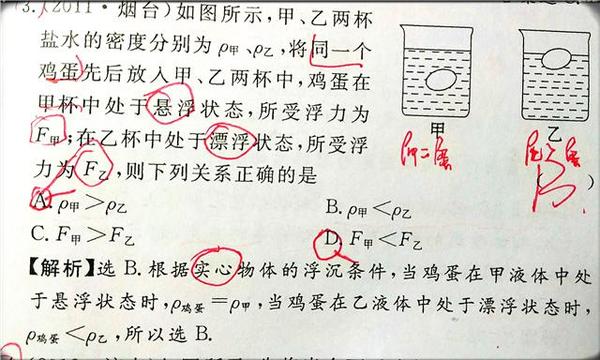 (3.(2011·烟台)如图所示,甲、乙两杯
盐水的密度分别为ρ甲、ρ乙,将同一个
鸡蛋先后放入甲、乙两杯中,鸡蛋在
甲杯中处于悬浮状态,所受浮力为
F甲;在乙杯中处于漂浮状态,所受浮
力为F乙,则下列关系正确的是
( )
甲
乙
A. ρ甲>ρ乙
B. ρ甲<ρ乙
C. F甲>F乙
D. F甲<F乙
【解析】选 B. 根据实心物体的浮沉条件,当鸡蛋在甲液体中处
于悬浮状态时,ρ鸡蛋=ρ甲,当鸡蛋在乙液体中处于漂浮状态时,
ρ鸡蛋<ρ乙,所以选 B.